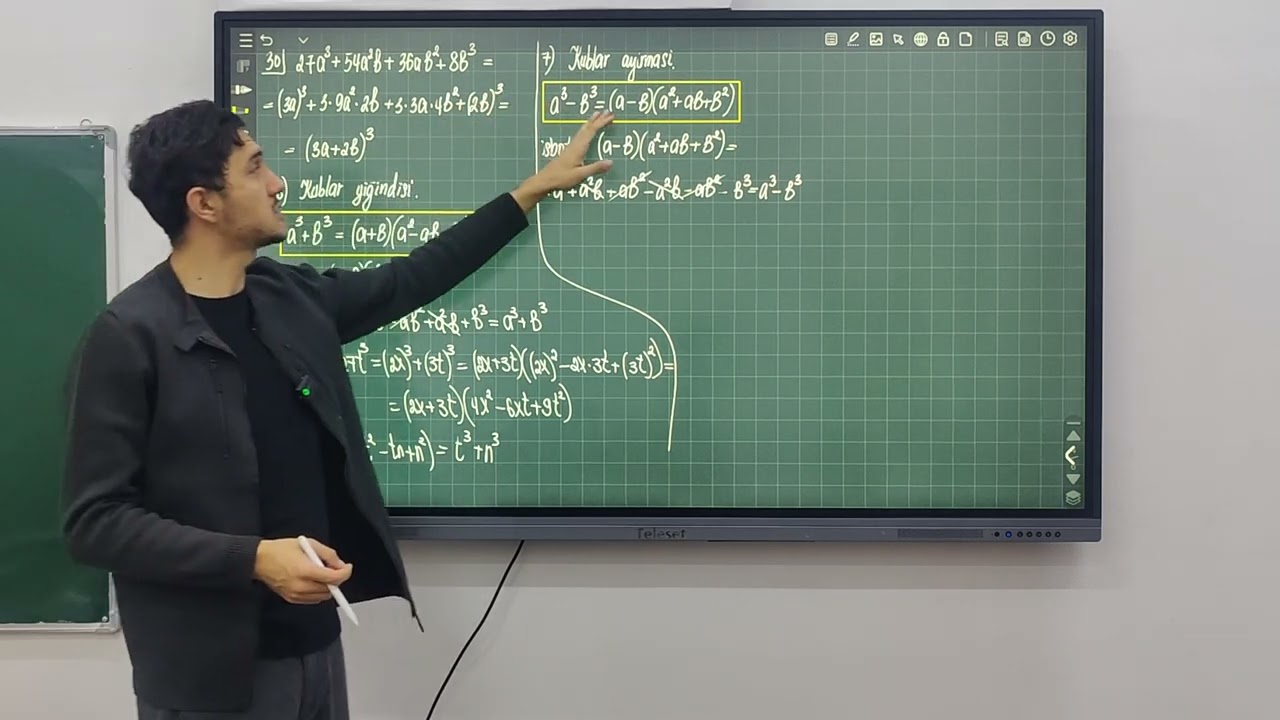 30) 27a³+54a²b+36ab²+8b³=
=(3a)³+3·9a²·2b+3·3a·4b²+(2b)³=
=(3a+2b)³
) Kublar yigindisi.
a³+b³=(a+b)(a²-ab
-ab²+a²b+b³=a³+b³
t³=(2x)³+(3t)³=(2x+3t)((2x)²-2x·3t+(3t)²)=
=(2x+3t)(4x²-6xt+9t²)
-tn+n²)=t³+n³
7) Kublar ayirmasi.
a³-b³=(a-b)(a²+ab+b²)
(a-b)(a²+ab+b²)=
+a²b+ab²-a²b-ab²-b³=a³-b³
Teleset